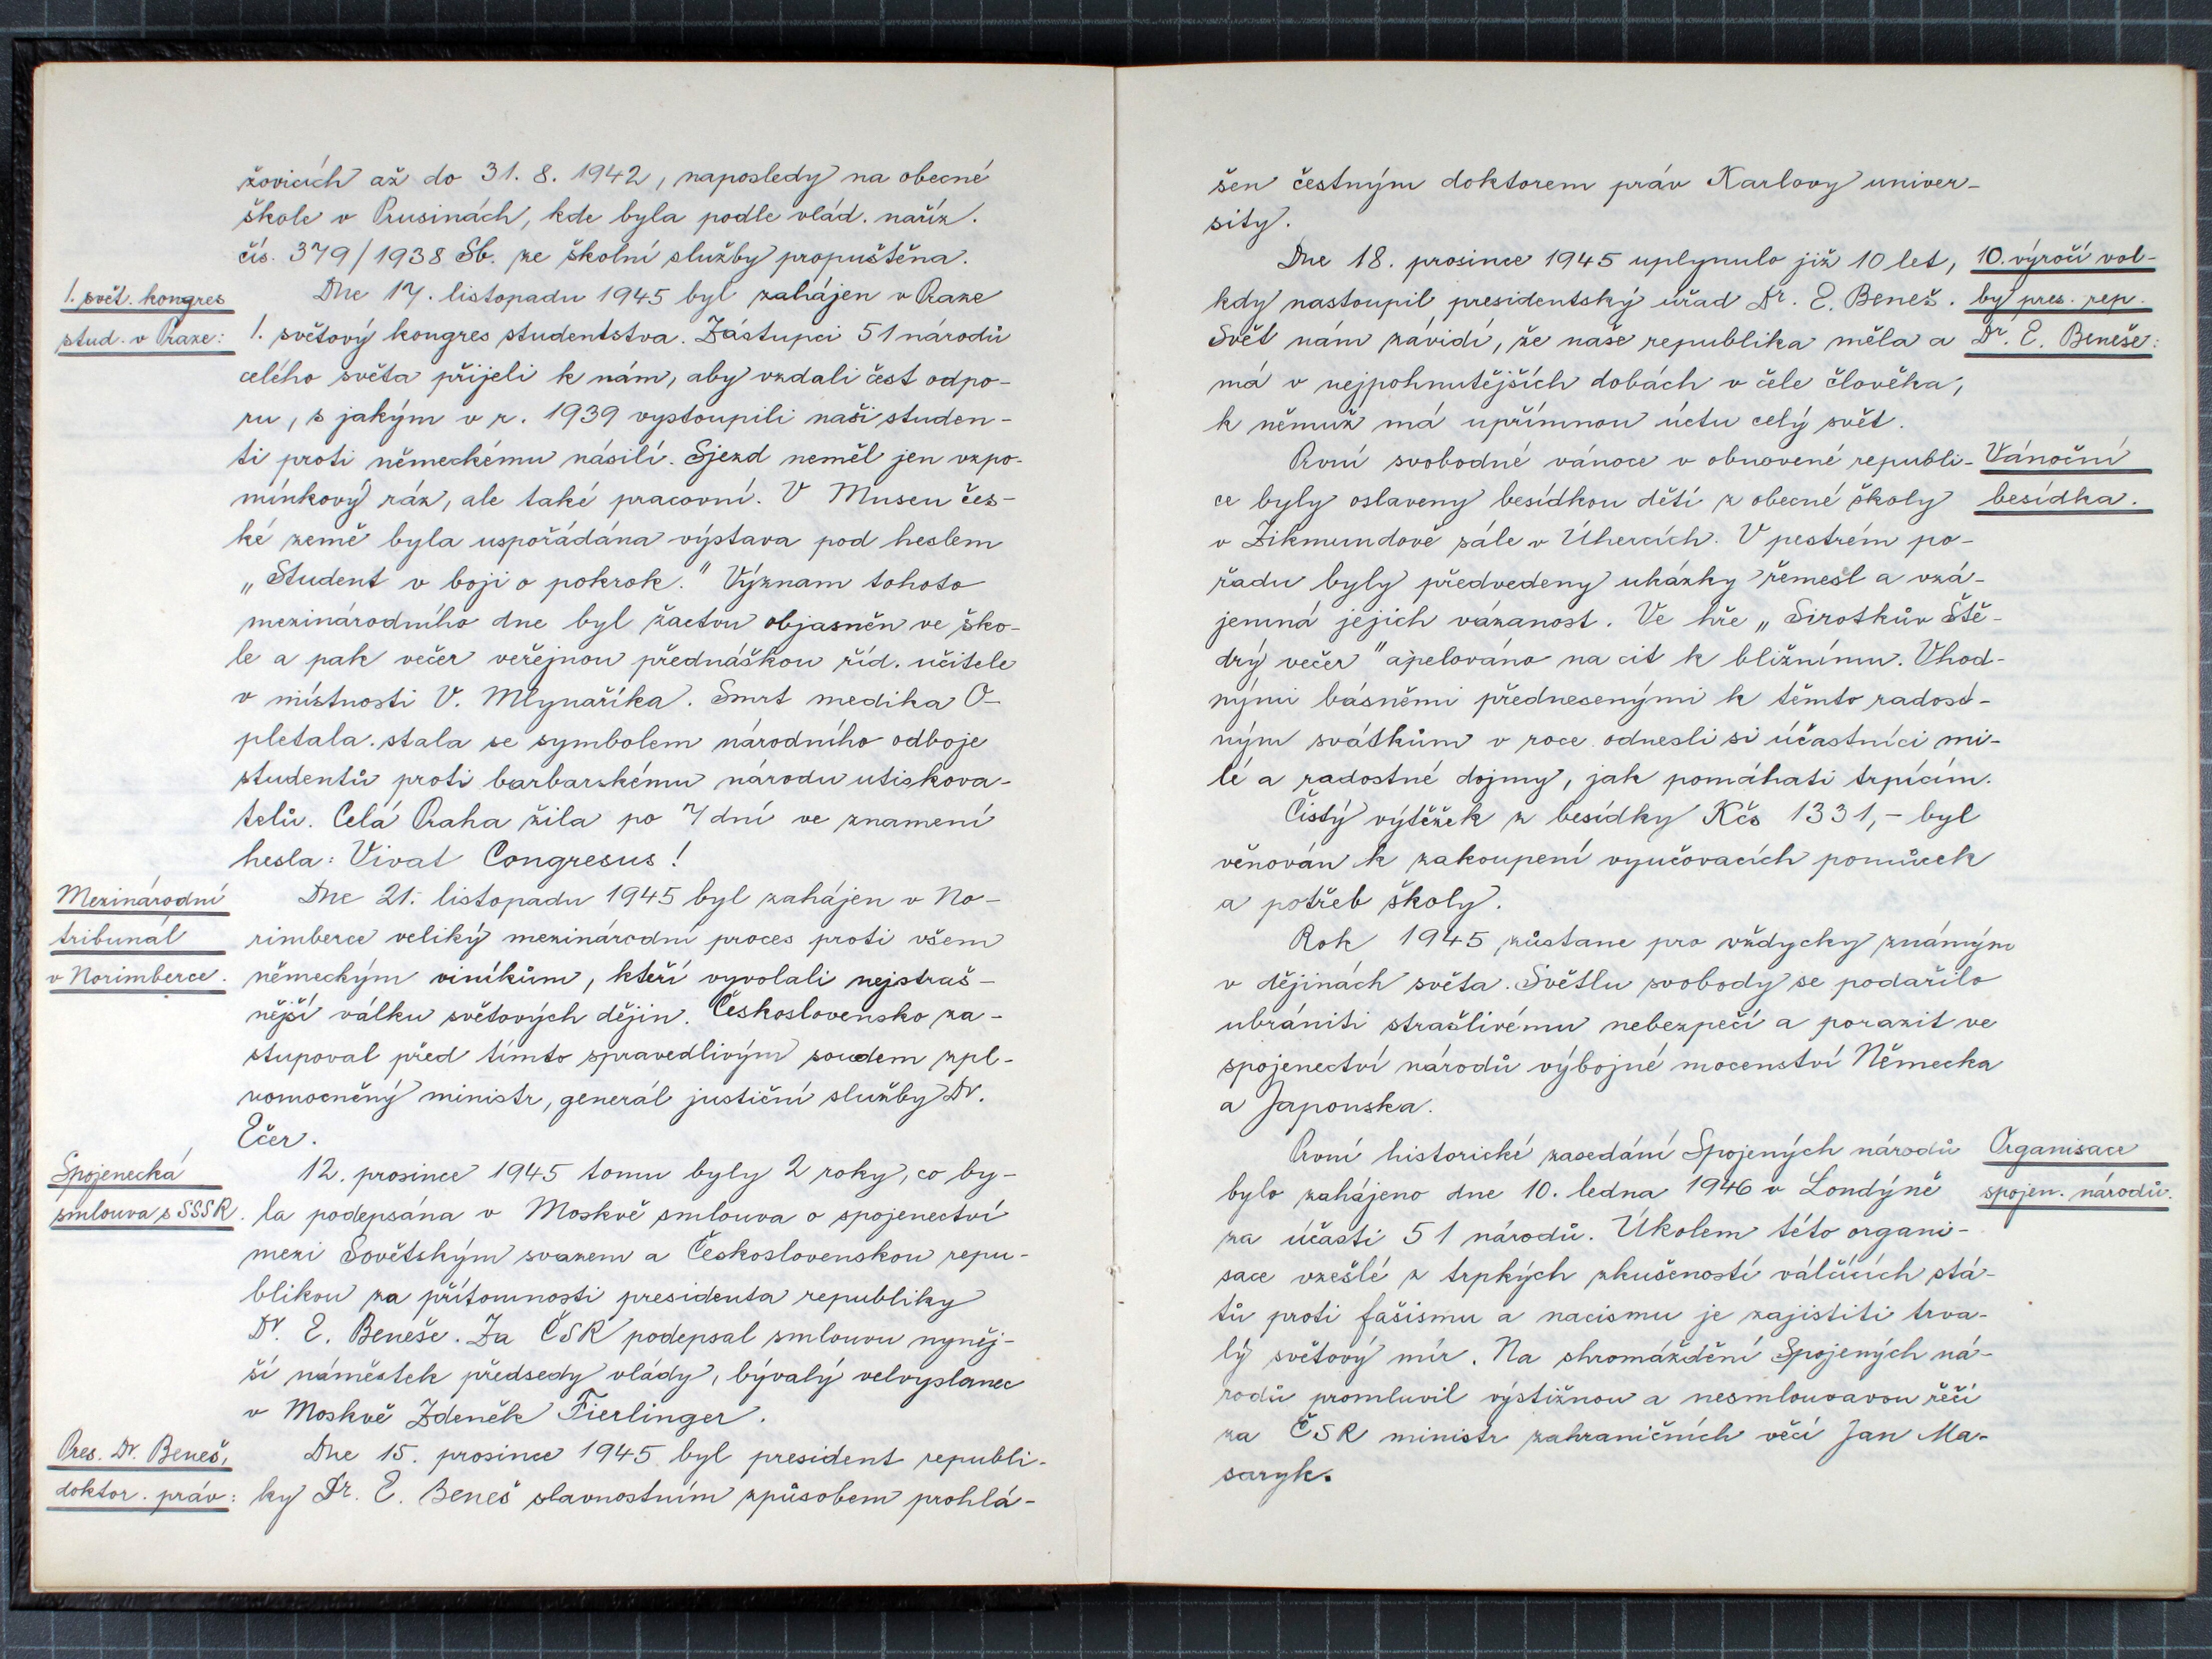 žovicích až do 31. 8. 1942, naposledy na obecné
škole v Prusinách, kde byla podle vlád. naříz.
čís. 379/1938 Sb. ze školní služby propuštěna.
1. svět. kongres
stud. v Praze:
Dne 17. listopadu 1945 byl zahájen v Praze
1. světový kongres studentstva. Zástupci 51 národů
celého světa přijeli k nám, aby vzdali čest odpo-
ru, s jakým v r. 1939 vystoupili naši studen-
ti proti německému násilí. Sjezd neměl jen vzpo-
mínkový ráz, ale také pracovní. V Museu čes-
ké země byla uspořádána výstava pod heslem
„Student v boji o pokrok." Význam tohoto
mezinárodního dne byl žactvu objasněn ve ško-
le a pak večer veřejnou přednáškou říd. učitele
v místnosti V. Mlynaříka. Smrt medika O-
pletala stala se symbolem národního odboje
studentů proti barbarskému národu utiskova-
telů. Celá Praha žila po 7 dní ve znamení
hesla: Vivat Congresus!
Mezinárodní
tribunál
v Norimberce.
Dne 21. listopadu 1945 byl zahájen v No-
rimberce veliký mezinárodní proces proti všem
německým viníkům, kteří vyvolali nejstraš-
nější válku světových dějin. Československo za-
stupoval před tímto spravedlivým soudem zpl-
nomocněný ministr, generál justiční služby Dr.
Ečer.
Spojenecká
smlouva s SSSR.
12. prosince 1945 tomu byly 2 roky, co by-
la podepsána v Moskvě smlouva o spojenectví
mezi Sovětským svazem a Československou repu-
blikou za přítomnosti presidenta republiky
Dr. E. Beneše. Za ČSR podepsal smlouvu nyněj-
ší náměstek předsedy vlády, bývalý velvyslanec
v Moskvě Zdeněk Fierlinger.
Pres. Dr. Beneš,
doktor. práv:
Dne 15. prosince 1945 byl president republi-
ky Dr. E. Beneš slavnostním způsobem prohlá-
šen čestným doktorem práv Karlovy univer-
sity.
Dne 18. prosince 1945 uplynulo již 10 let,
kdy nastoupil presidentský úřad Dr. E. Beneš.
Svět nám závidí, že naše republika měla a
má v nejpohnutějších dobách v čele člověka,
k němuž má upřímnou úctu celý svět.
10. výročí vol-
by pres. rep.
Dr. E. Beneše:
První svobodné vánoce v obnovené republi-
ce byly oslaveny besídkou dětí z obecné školy
v Zikmundově sále v Úhercích. V pestrém po-
řadu byly předvedeny ukázky řemesl a vzá-
jemná jejich vázanost. Ve hře „Sirotkův Ště-
drý večer" apelováno na cit k bližnímu. Vhod-
nými básněmi přednesenými k těmto radost-
ným svátkům v roce odnesli si účastníci mi-
lé a radostné dojmy, jak pomáhati trpícím.
Vánoční
besídka.
Čistý výtěžek z besídky Kčs 1331,- byl
věnován k zakoupení vyučovacích pomůcek
a potřeb školy.
Rok 1945 zůstane pro vždycky známým
v dějinách světa. Světlu svobody se podařilo
ubrániti strašlivému nebezpečí a porazit ve
spojenectví národů výbojné mocenství Německa
a Japonska.
První historické zasedání Spojených národů
bylo zahájeno dne 10. ledna 1946 v Londýně
za účasti 51 národů. Úkolem této organi-
sace vzešlé z trpkých zkušeností válčících stá-
tů proti fašismu a nacismu je zajistiti trva-
lý světový mír. Na shromáždění Spojených ná-
rodů promluvil výstižnou a nesmlouvavou řečí
za ČSR ministr zahraničních věcí Jan Ma-
saryk.
Organisace
spojen. národů.